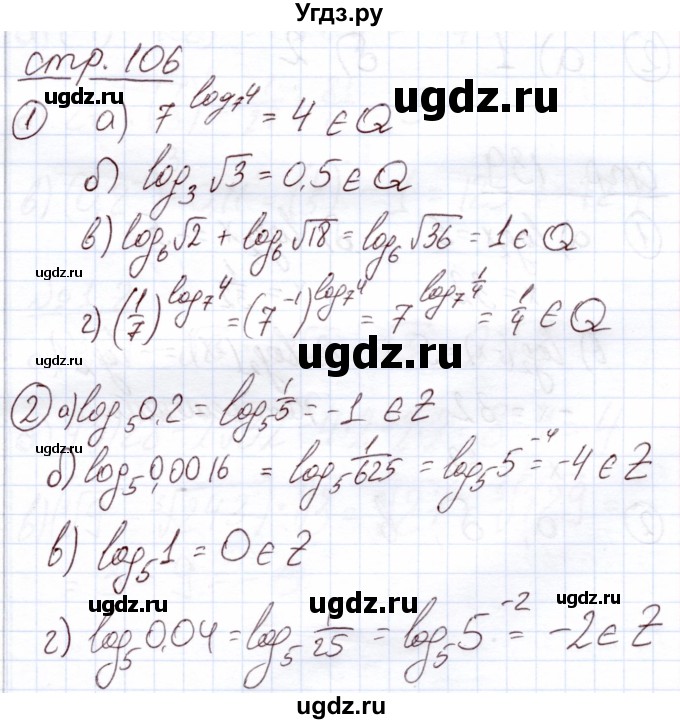 Угдз.ру
стр. 106
ugdz.ru ugdz.ru
① а) 7^{log_7 4} = 4 ∈ Q
б) log_3 √3 = 0,5 ∈ Q
в) log_6 √2 + log_6 √18 = log_6 √36 = 1 ∈ Q
ugdz.ru
г) (1/7)^{log_7 4} = (7^{-1})^{log_7 4} = 7^{log_7 1/4} = 1/4 ∈ Q
ugdz.ru
② а) log_5 0,2 = log_5 1/5 = -1 ∈ Z
ugdz.ru
б) log_5 0,0016 = log_5 1/625 = log_5 5^{-4} = -4 ∈ Z
в) log_5 1 = 0 ∈ Z
ugdz.ru ugdz.ru ugdz.ru
г) log_5 0,04 = log_5 1/25 = log_5 5^{-2} = -2 ∈ Z
ugdz.ru